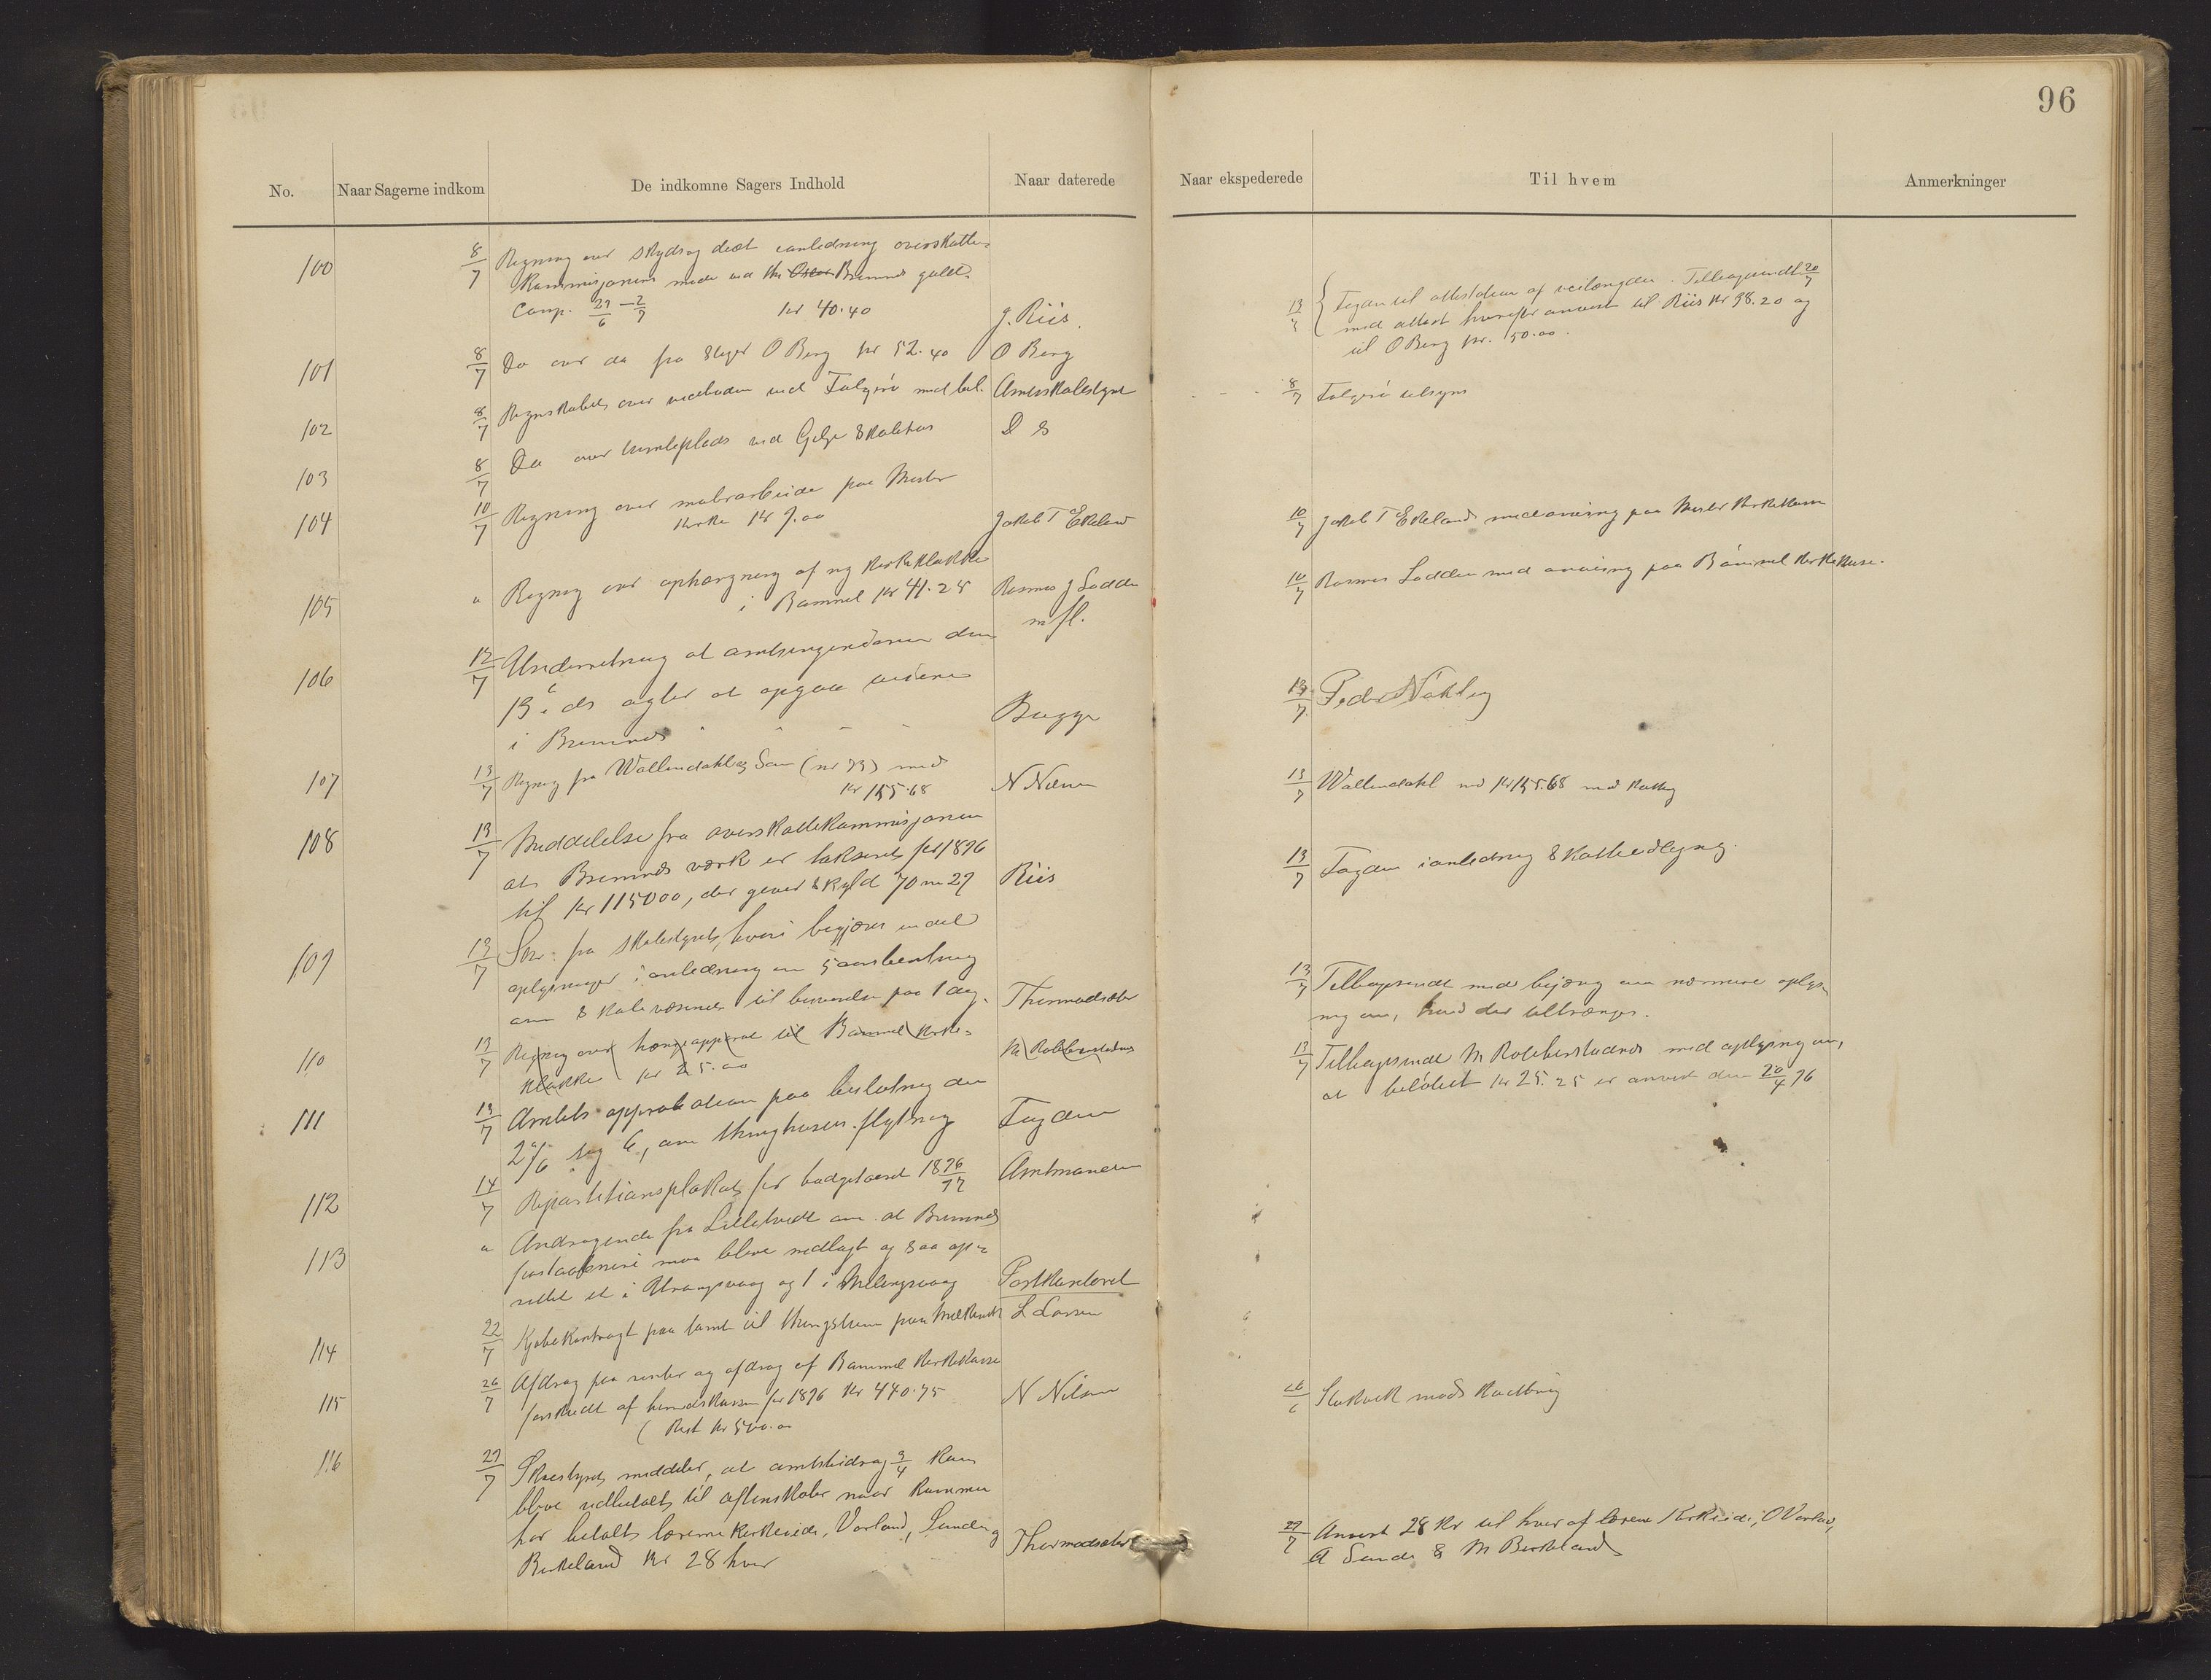 96
No. Naar Sagerne indkom De indkomne Sagers Indhold Naar daterede Naar ekspederede Til hvem Anmerkninger
100 8/7 Regning over skyds og diæt i anledning overskatte=
Kommisjonens møde ved Bremnes guld=
Comp. 29/6 - 2/7 kr 40.40 J. Riis.
13/7 Fogden til attestation af veilængden. Tilbagesendt 20/7
med attest hvorefter anvist til Riis kr 38.20 og
til O Berg kr. 50.00.
101 8/7 Do over do fra O Berg kr 52.40 O Berg
102 8/7 Regnskabet over med bil. Amtsskolestyret
8/7 tilsyn
103 8/7 Do over ved skolehus D S
104 10/7 Regning over malerarbeide paa Møster
Kirke kr 9.00 Jakob T Ekeland
10/7 Jakob T Ekeland med anvisning paa Møster Kirkekasse
105 " Regning over ophængning af ny Kirkeklokke
i Bømmel kr 41.25 Rasmus J Lodden
m fl.
10/7 Rasmus Lodden med anvisning paa Bømmel Kirkekasse.
106 12/7 Underretning at amtsingeniøren den
13 ds agter at opgaa veiene
i Bremnes Bugge
13/7 Peder Nøkling
107 13/7 Regning fra Wallendahl og Søn (nr 93) med
kr 155.68 N Nilsen
13/7 Wallendahl med kr 155.68 mod
108 13/7 Meddelelse fra overskattekommisjonen
at Bremnes værk er takseret for 1896
til kr 115000, der giver skyld 70 m 27 Riis
13/7 Fogden i anledning
109 13/7 Skr. fra skolestyret, hvori begjæres endel
oplysninger i anledning en 5 aarsberetning
om skolevæsenet til besvarelse paa 1 dag. Thormodsæter
13/7 Tilbagesendt med begjæring om nærmere oplys=
ning om, hvad der tiltrænges.
110 13/7 Regning over hængeapparat til Bømmel Kirke=
klokke kr 25.00
13/7 Tilbagesendt M med oplysning om,
at beløbet kr 25.25 er anvist den 20/4 96
111 13/7 Amtets approbation paa beslutning den
27/6 sag 6, om thinghusets flytning Fogden
112 14/7 Repartitionsplakat for budgetaaret 1896/97 Amtmanden
113 " Andragende fra Lillehvedt om at Bremnes
postaabneri maa blive nedlagt og saa op=
rettet et i Urangsvaag og 1 i Mælingsvaag Postkontoret
114 22/7 Kjøbekontragt paa tomt til thingstuen paa L Larsen
115 26/7 Afdrag paa renter og afdrag af Bømmel Kirkekasse
forskudt af herredskassen for 1896 kr 440.75 N Nilsen
( Rest kr 500.00
116 27/7 Skolestyret meddeler, at amtsbidrag 3/4 kan
blive udbetalt til aftenskoler naar kommunen
har betalt lærerne Kirkeide, Vorland, Sunde og
Birkeland kr 28 hver Thormodsæter
27/7 Anvist 28 kr til hver af lærerne Kirkeide, O Vorland,
A Sunde & M Birkeland